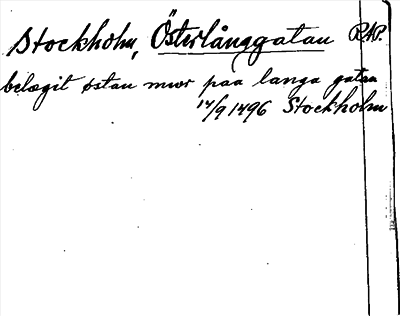 Stockholm, Österlånggatan RAP.
belægit østan mwr paa langa gatan
14/9 1496 Stockholm